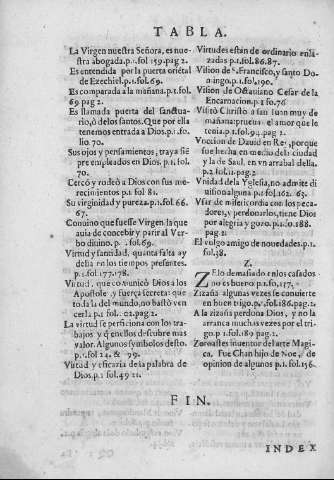 TABLA.
La Virgen nuestra Señora, es nue-
stra abogada.p.1.fol.159.pag 2.
Es entendida por la puerta oriétal
de Ezechiel.p.1.fol.69.
Es comparada a la mañana.p.1.fol.
69 pag 2.
Es llamada puerta del sanctua-
rio,ò delos santos.Que por ella
tenemos entrada a Dios.p.1.fo.
lio.70.
Sus ojos y pensamientos, traya siẽ
pre empleados en Dios.p.1.fol.
70.
Cercó y rodeò a Dios con sus me-
recimientos p.1 fol 81.
Su virginidad y pureza.p.1.fol.66.
67.
Conuino que fuesse Virgen la que
auia de concebir y parir al Ver-
bo diuino.p.1.fol.69.
Virtud y santidad, quanta falta ay
della en los tiempos presentes.
p.1.fol.177.178.
Virtud, que comunicò Dios a los
Apostoles, y fuerça secreta: que
toda la del mundo, no bastò ven
cerla p.1 fol. 22.pag 2.
La virtud se perficiona con los tra-
bajos y q̃ enellos descubre mas
valor. Algunos symbolos desto.
p.1.fol 24. & 79.
Virtud y eficacia dela palabra de
Dios.p.1 fol.49 21.
Virtudes estan de ordinario enla-
zadas p.1.fol.86.87.
Vision de S.Francisco, y santo Do-
mingo.p.1.fol.190.
Vision de Octauiano Cesar de la
Encarnacion.p.1 fo.76
Visitó Christo a san Iuan muy de
mañana: prueua el amor que le
tenia.p.1.fol.94.pag 2.
Vocacion de Dauid en Rey, porque
fue hecha en medio dela ciudad
y la de Saul, en vn arrabal della.
p.2 fol.11.pag.2.
Vnidad dela Yglesia, no admite di
uision alguna p.1.fol.162.163.
Vsar de misericordia con los peca-
dores, y perdonarlos, tiene Dios
por alegria y gozo.p.1.fo.188.
pag 2.
El vulgo amigo de nouedades.p.1.
fol.38.
Z.
ZElo demasiado en los casados
no es bueno.p.1.fo,117.
Zizaña algunas vezes se conuierte
en buen trigo.p.1.fol.186.pag.2.
A la zizaña perdona Dios, y no la
arranca muchas vezes por el tri-
go.p.1.fol.189 pag.2.
Zoroastes inuentor del arte Magi-
ca. Fue Chan hijo de Noe, de
opinion de algunos p.1.fol.156.
FIN.
INDEX